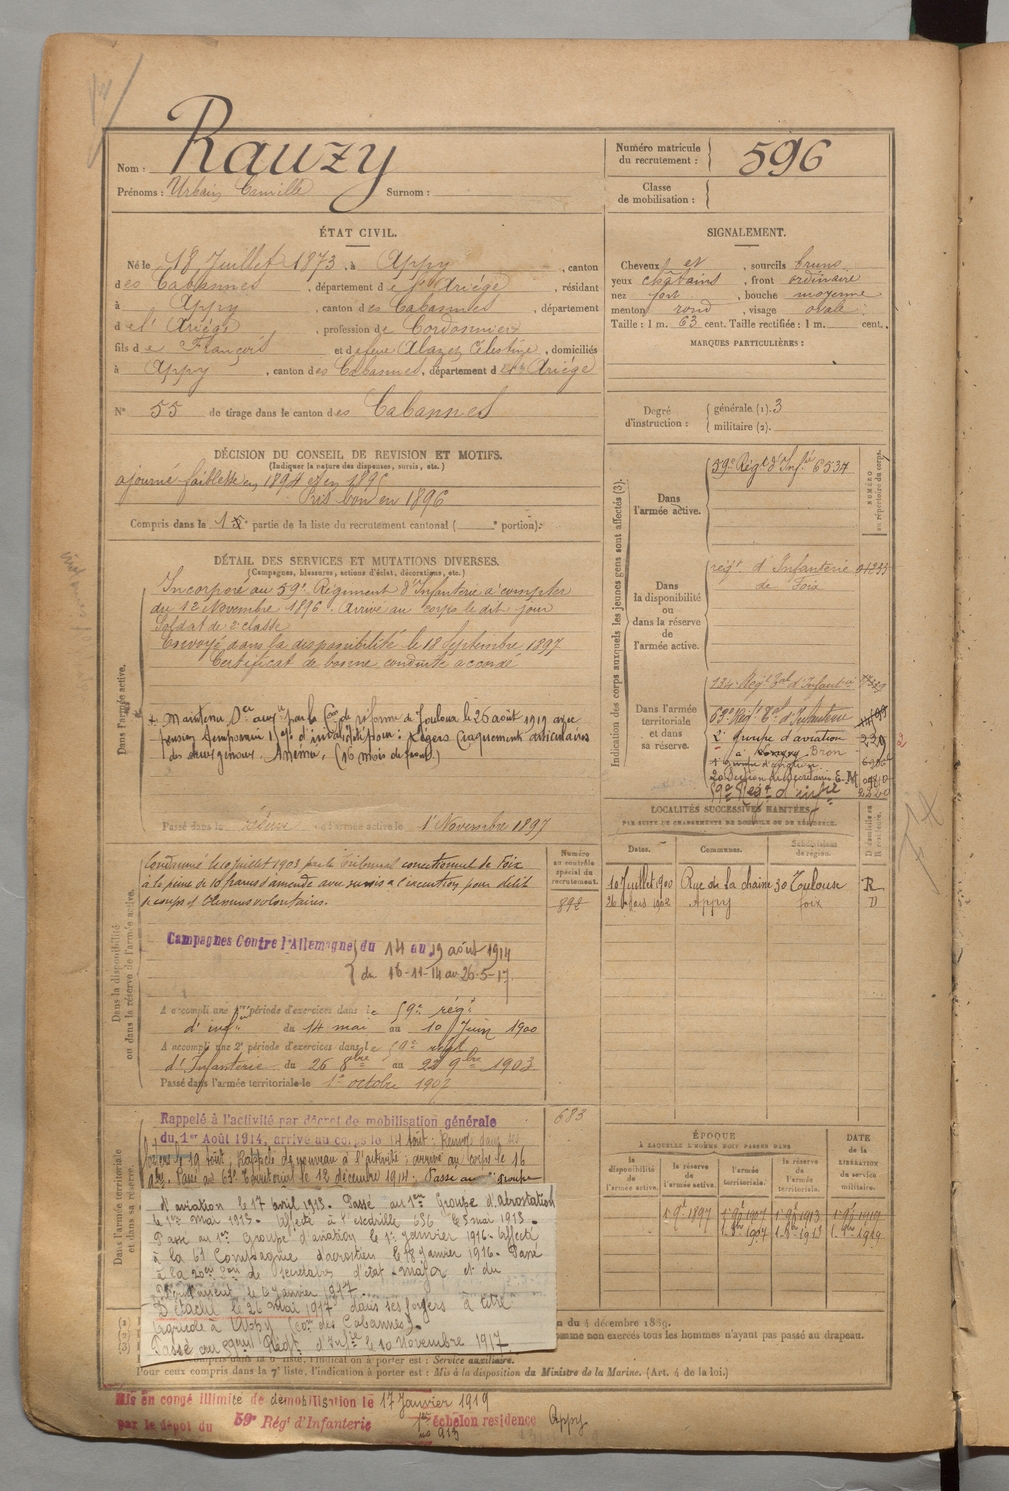 Nom : Rauzy
Prénoms : Urbain Camille Surnom :
Numéro matricule du recrutement : 596
Classe de mobilisation :
ÉTAT CIVIL.
Né le 18 Juillet 1873, à Appy, canton
des Cabannes, département de l'Ariége, résidant
à Appy, canton des Cabannes, département
de l'Ariége, profession de Cordonnier
fils de François et de feue Alazet Célestine, domiciliés
à Appy, canton des Cabannes, département de l'Ariége
N° 55 de tirage dans le canton des Cabannes
SIGNALEMENT.
Cheveux et, sourcils bruns
yeux châtains, front ordinaire
nez fort, bouche moyenne
menton rond, visage ovale
Taille : 1 m. 63 cent. Taille rectifiée : 1 m. cent.
MARQUES PARTICULIÈRES :
Degré d'instruction : générale (1). 3
militaire (2).
DÉCISION DU CONSEIL DE REVISION ET MOTIFS.
(Indiquer la nature des dispenses, sursis, etc.)
ajourné faiblesse en 1894 et en 1895
Pris bon en 1896
Compris dans la 1e partie de la liste du recrutement cantonal ( e portion).
DÉTAIL DES SERVICES ET MUTATIONS DIVERSES.
(Campagnes, blessures, actions d'éclat, décorations, etc.)
Dans l'armée active.
Incorporé au 59e Régiment d'Infanterie à compter
du 12 Novembre 1896. Arrivé au corps le dit jour
Soldat de 2e classe
Envoyé dans la disponibilité le 18 Septembre 1897
Certificat de bonne conduite accordé
Maintenu Sce auxre par la Con de réforme de Toulouse le 26 août 1919 avec
pension temporaire d'invalidité pour : Légers craquements articulaires
des deux genoux. Anémie. (16 mois de front.)
Passé dans la réserve de l'armée active le 1er Novembre 1897
Indication des corps auxquels les jeunes gens sont affectés (3).
NUMÉRO au répertoire du corps.
Dans l'armée active.
59e Régt d'Infrie 6534
Dans la disponibilité ou dans la réserve de l'armée active.
régt d'Infanterie 01233
de Foix
Dans l'armée territoriale et dans sa réserve.
134e Régt Tal d'Infantie
63e Régt Tal d'Infanterie
2e groupe d'aviation 239
à Bron
1er Groupe d'aviation
20e Section de Secrétaires E.M
59e Régt d'infie
LOCALITÉS SUCCESSIVES HABITÉES,
PAR SUITE DE CHANGEMENTS DE DOMICILE OU DE RÉSIDENCE.
Dates. Communes. Subdivisions de région. D domicile ou R résidence.
10 Juillet 1900 Rue de la chaine 30 Toulouse R
26 Mars 1902 Appy foix D
Dans la disponibilité ou dans la réserve de l'armée active.
Numéro au contrôle spécial du recrutement.
892
Condamné le 10 juillet 1903 par le Tribunal correctionnel de Foix
à la peine de 10 francs d'amende avec sursis à l'exécution pour délit
de coups et blessures volontaires.
Campagnes Contre l'Allemagne du 14 au 19 août 1914
du 16-11-14 au 26-5-17.
A accompli une 1re période d'exercices dans le 59e régt
d'infie du 14 mai au 10 Juin 1900
A accompli une 2e période d'exercices dans le 59e régt
d'Infanterie du 26 8bre au 22 9bre 1903
Passé dans l'armée territoriale le 1er octobre 1907
Dans l'armée territoriale et dans sa réserve.
683
Rappelé à l'activité par décret de mobilisation générale
du 1er Août 1914, arrivé au corps le 14 août. Renvoyé dans ses
foyers le 19 août. Rappelé de nouveau à l'activité ; arrivé au corps le 16
9bre. Passé au 63e Territorial le 12 décembre 1914. Passé au groupe
d'aviation le 17 avril 1915. Passé au 1er Groupe d'aérostation
le 1er mai 1915. Affecté à l'escadrille le 5 mai 1915.
Passé au 1er Groupe d'aviation le 1er janvier 1916. Affecté
à la 61e Compagnie d'aérostiers le 18 janvier 1916. Passé
à la 20e Son de Secrétaires d'état-major et du
recrutement le 6 janvier 1917.
Détaché le 26 mai 1917 dans ses foyers à titre
agricole à Appy (con des Cabannes).
Passé au 59me Régt d'Infie le 10 Novembre 1917
ÉPOQUE
À LAQUELLE L'HOMME DOIT PASSER DANS
la disponibilité de l'armée active. la réserve de l'armée active. l'armée territoriale. la réserve de l'armée territoriale.
DATE DE LA LIBÉRATION DU SERVICE MILITAIRE.
1er 9bre 1897 1er 9bre 1907 1er 9bre 1913 1er 9bre 1919
1er 8bre 1907 1er 8bre 1913 1er 8bre 1919
du 4 décembre 1889.
comme non exercés tous les hommes n'ayant pas passé au drapeau.
compris dans la 6e liste, l'indication à porter est : Service auxiliaire.
Pour ceux compris dans la 7e liste, l'indication à porter est : Mis à la disposition du Ministre de la Marine. (Art. 4 de la loi.)
Mis en congé illimité de démobilisation le 17 Janvier 1919
par le dépôt du 59e Régt d'Infanterie 1er échelon résidence Appy
no 913